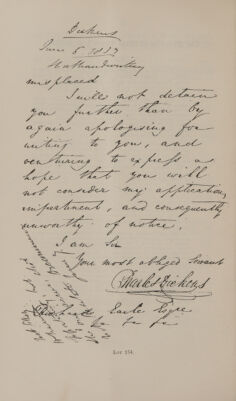 Dickens
June 6 1833
misplaced
I will not detain
you further than by
again apologising for
writing to you, and
venturing to express a
hope that you will
not consider my application
impertinent, and consequently
unworthy of notice.
I am Sir
Your most obliged Servant
Charles Dickens
Earle Esqre
&c &c &c
LOT 154.